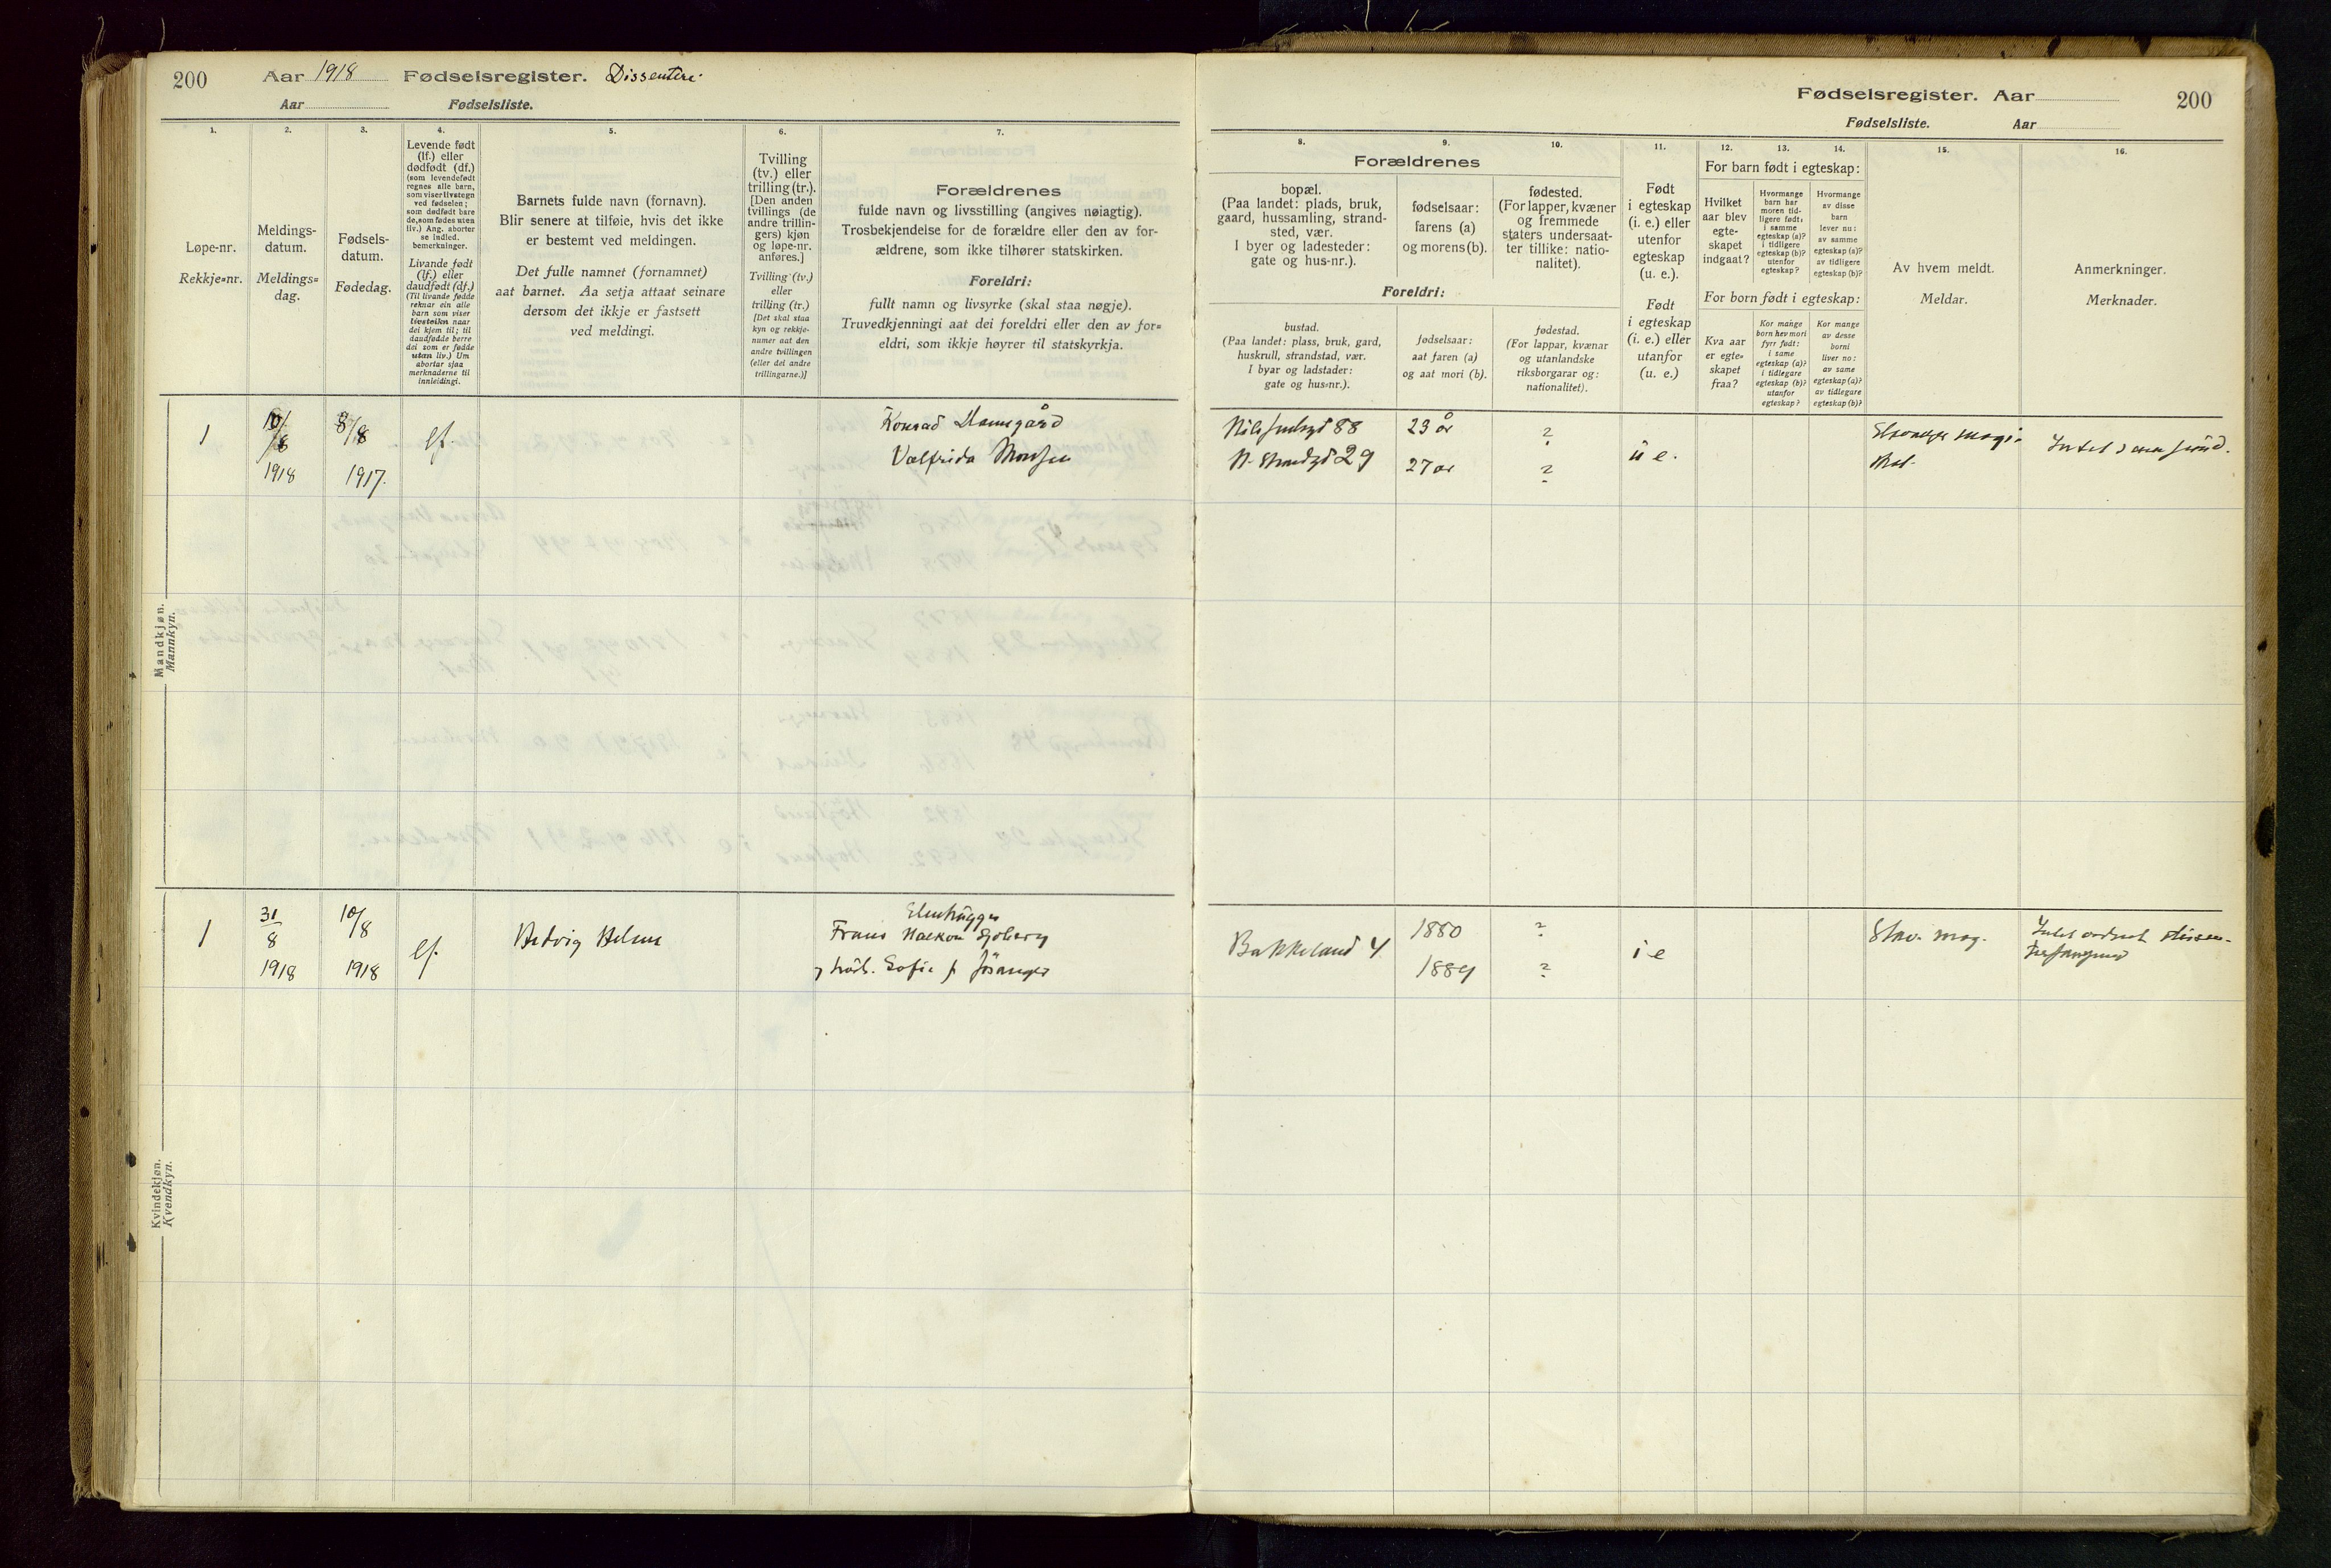 200
Aar 1918 Fødselsregister. Dissentere
Aar Fødselsliste.
1.
2.
3.
4.
5.
6.
7.
Løpe-nr.
Rekkje=nr.
Meldings-
datum.
Meldings=
dag.
Fødsels-
datum.
Fødedag.
Levende født
(lf.) eller
dødfødt (df.)
(som levendefødt
regnes alle barn,
som viser livstegn
ved fødselen;
som dødfødt bare
de, som fødes uten
liv.) Ang. aborter
se indled.
bemerkninger.
Livande født
(lf.) eller
daudfødt (df.)
(Til livande fødde
reknar ein alle
barn som viser
livsteikn naar
dei kjem til; til
daudfødde berre
dei som er fødde
utan liv.) Um
abortar sjaa
merknaderne til
innleidingi.
Barnets fulde navn (fornavn).
Blir senere at tilføie, hvis det ikke
er bestemt ved meldingen.
Det fulle namnet (fornamnet)
aat barnet. Aa setja attaat seinare
dersom det ikkje er fastsett
ved meldingi.
Tvilling
(tv.) eller
trilling (tr.).
[Den anden
tvillings (de
andre trillin-
gers) kjøn
og løpe-nr.
anføres.]
Tvilling (tv.)
eller
trilling (tr.)
[Det skal staa
kyn og rekkje-
numer aat den
andre tvillingen
(eller dei andre
trillingarne.)]
Forældrenes
fulde navn og livsstilling (angives nøiagtig).
Trosbekjendelse for de forældre eller den av for-
ældrene, som ikke tilhører statskirken.
Foreldri:
fullt namn og livsyrke (skal staa nøgje).
Truvedkjenningi aat dei foreldri eller den av for=
eldri, som ikkje høyrer til statskyrkja.
Mandkjøn.
Mannkyn.
1
10/8
1918
8/8
1917.
lf.
Konrad
Valfrida Monsen
Kvindekjøn.
Kvendkyn.
1
31
8
1918
10/8
1918
lf.
Hedvig Helene
Frans Haakon Sjøberg
Sofie f.
Fødselsregister. Aar
200
Fødselsliste. Aar
8.
9.
10.
11.
12.
13.
14.
15.
16.
Forældrenes
bopæl.
(Paa landet: plads, bruk,
gaard, hussamling, strand-
sted, vær.
I byer og ladesteder:
gate og hus-nr.).
fødselsaar:
farens (a)
og morens (b).
fødested.
(For lapper, kvæner
og fremmede
staters undersaat-
ter tillike: natio-
nalitet).
Foreldri:
bustad.
(Paa landet: plass, bruk, gard,
huskrull, strandstad, vær.
I byar og ladstader:
gate og hus=nr.).
fødselsaar:
aat faren (a)
og aat mori (b).
fødestad.
(For lappar, kvænar
og utanlandske
riksborgarar og:
nationalitet).
Født
i egteskap
(i. e.) eller
utenfor
egteskap
(u. e.).
Født
i egteskap
(i. e.) eller
utanfor
(u. e.)
For barn født i egteskap:
Hvilket
aar blev
egte-
skapet
indgaat?
Hvormange
barn har
moren tid-
ligere født:
i samme
egteskap (a)?
i tidligere
egteskap (b)?
utenfor
egteskap?
Hvormange
av disse
barn
lever nu:
av samme
egteskap (a)?
av tidligere
egteskap (b)?
For born født i egteskap:
Kva aar
er egte=
skapet
fraa?
Kor mange
born hev mori
fyrr født:
i same
egteskap (a)?
i tidlegare
egteskap (b)?
utanfor
egteskap?
Kor mange
av desse
borni
liver no:
av same
egteskap (a)?
av tidlegare
egteskap (b)?
Av hvem meldt.
Meldar.
Anmerkninger.
Merknader.
88
29
23 år
27 år
?
?
u e.
Bakkeland 4
1880
1889
?
?
i e
Stav. mag.